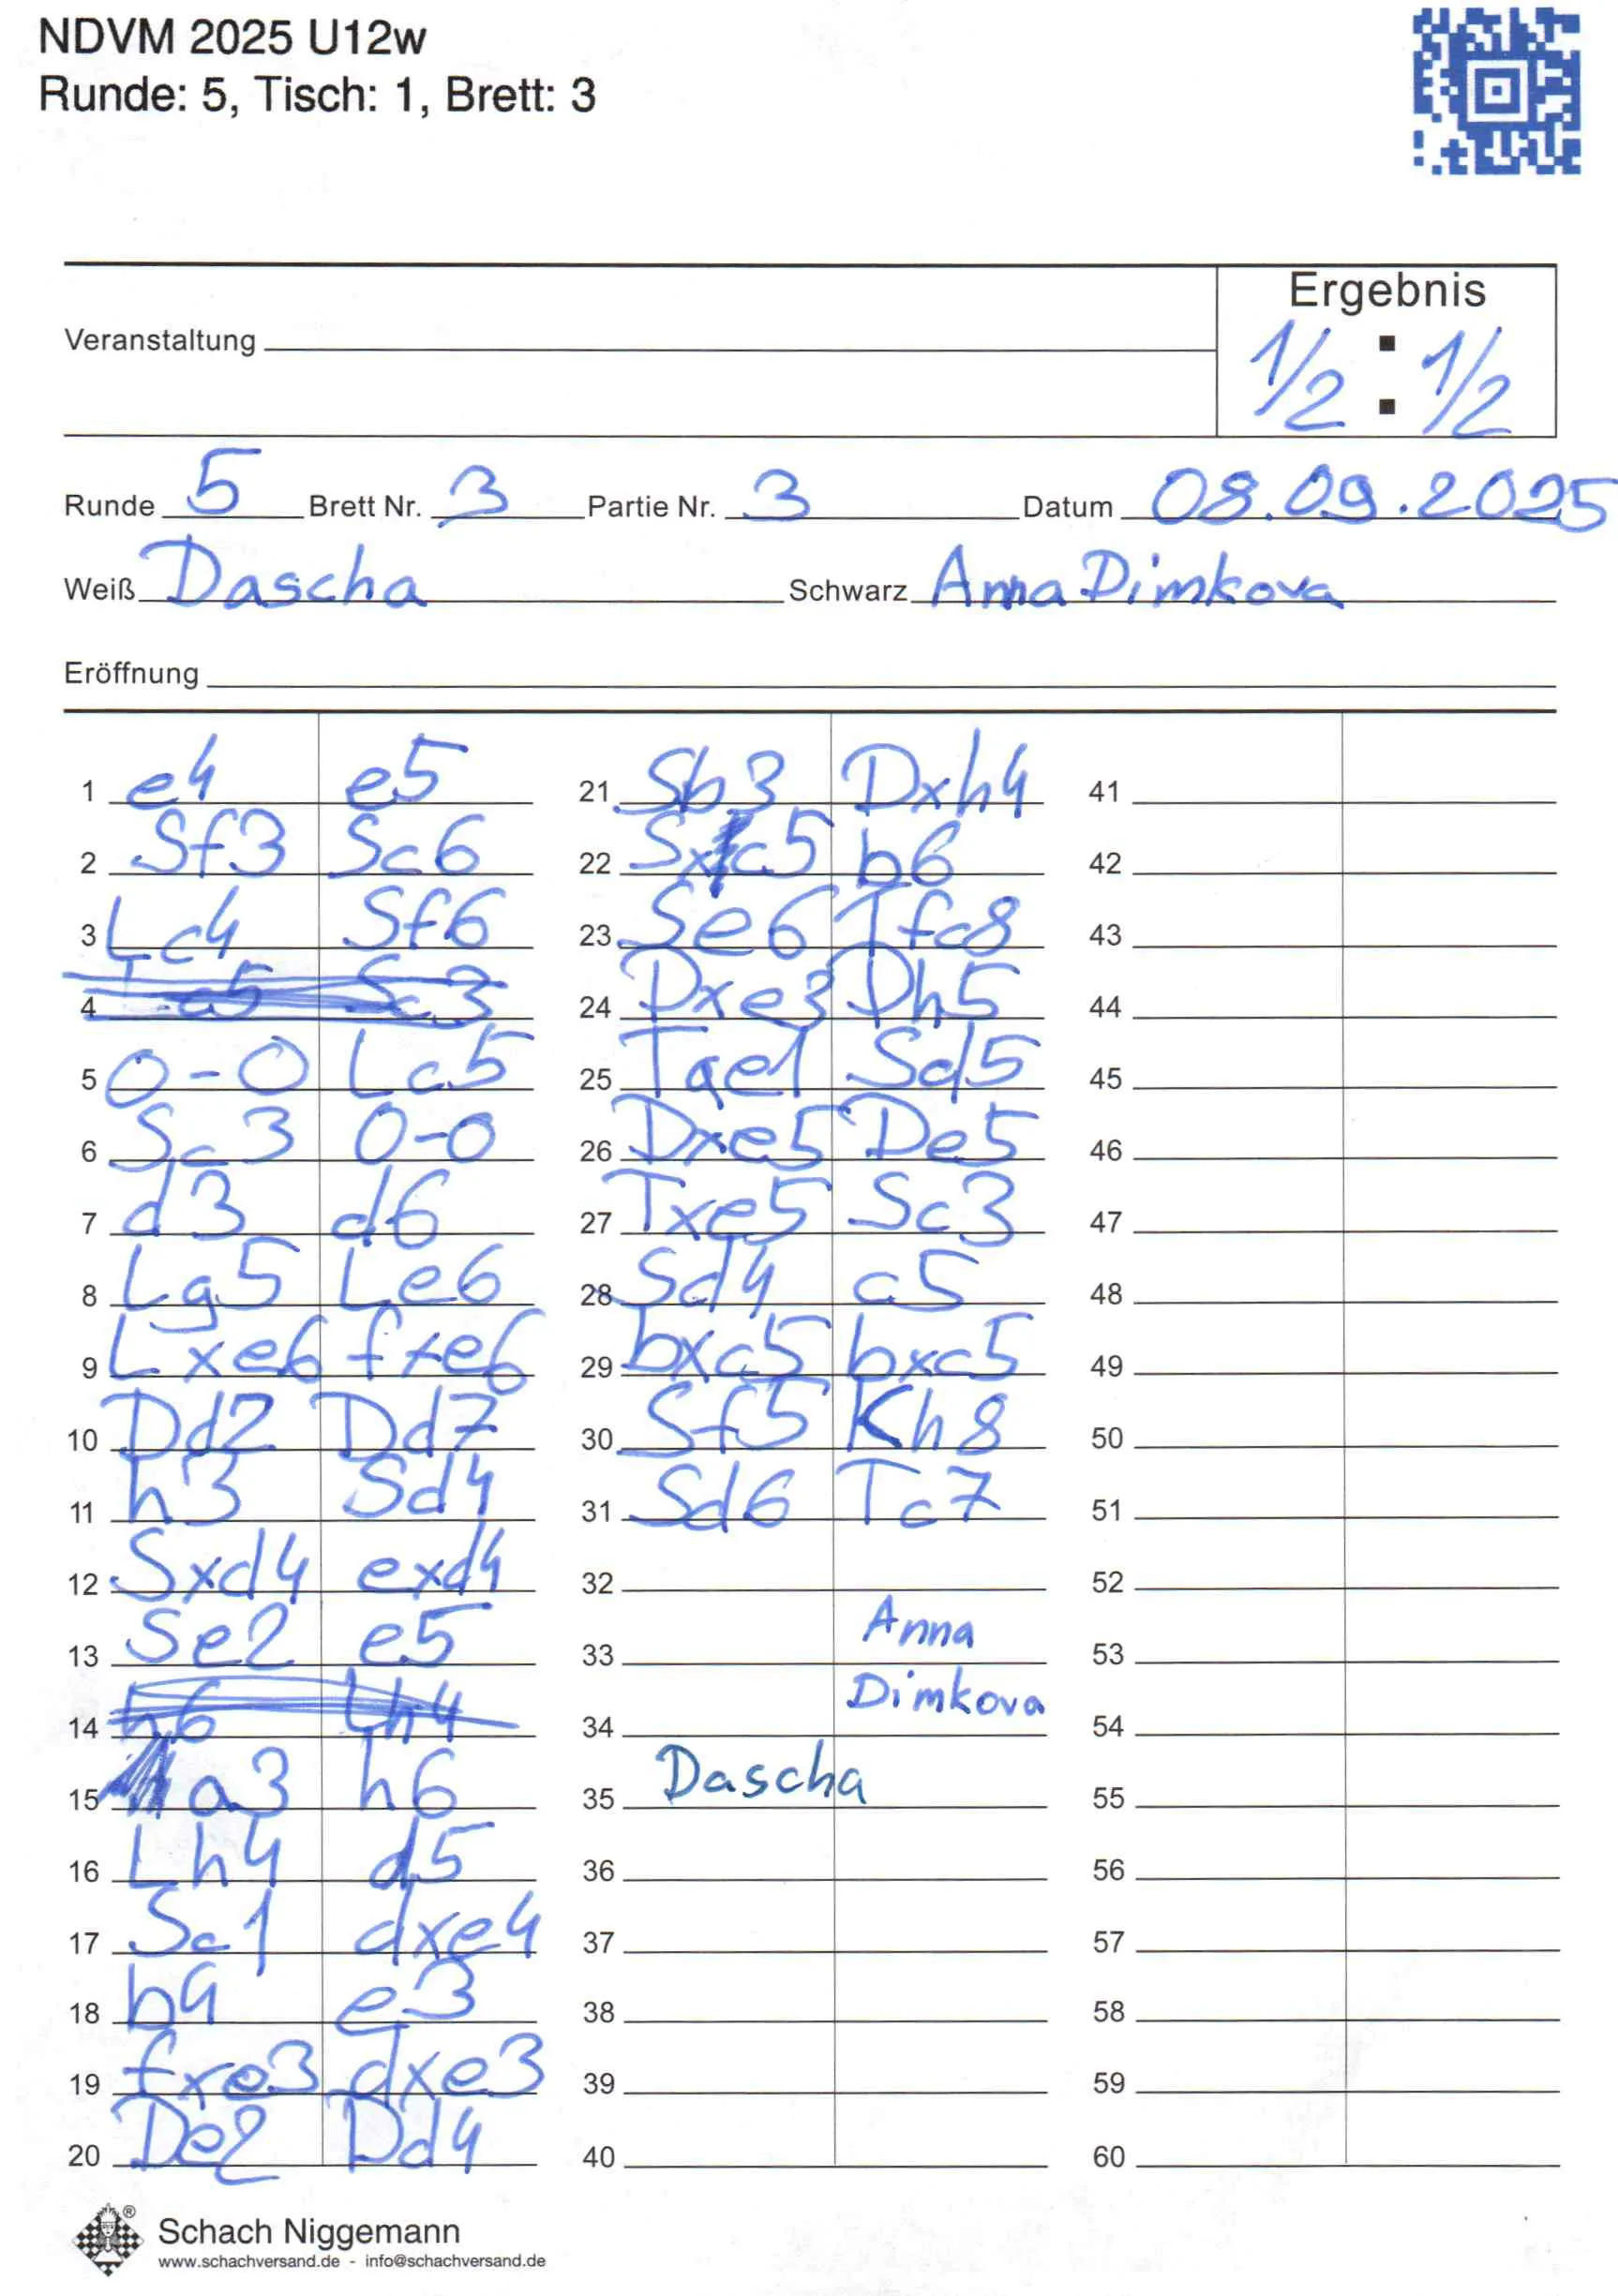 NDVM 2025 U12w
Runde: 5, Tisch: 1, Brett: 3
Ergebnis
Veranstaltung
1/2 : 1/2
Runde 5 Brett Nr. 3 Partie Nr. 3 Datum 08.09.2025
Weiß Dascha Schwarz Anna Dimkova
Eröffnung
1 e4 e5
2 Sf3 Sc6
3 Lc4 Sf6
4
5 0-0 Lc5
6 Sc3 0-0
7 d3 d6
8 Lg5 Le6
9 Lxe6 fxe6
10 Dd2 Dd7
11 h3 Sd4
12 Sxd4 exd4
13 Se2 e5
14 h6 Lh4
15 a3 h6
16 Lh4 d5
17 Sc1 dxe4
18 b4 e3
19 fxe3 dxe3
20 De2 Dd4
21 Sb3 Dxh4
22 Sxc5 b6
23 Se6 Tfc8
24 Dxe3 Dh5
25 Tae1 Sd5
26 Dxe5 De5
27 Txe5 Sc3
28 Sd4 c5
29 bxc5 bxc5
30 Sf5 Kh8
31 Sd6 Tc7
32
33 Anna
34 Dimkova
35 Dascha
36
37
38
39
40
41
42
43
44
45
46
47
48
49
50
51
52
53
54
55
56
57
58
59
60
Schach Niggemann
www.schachversand.de - info@schachversand.de